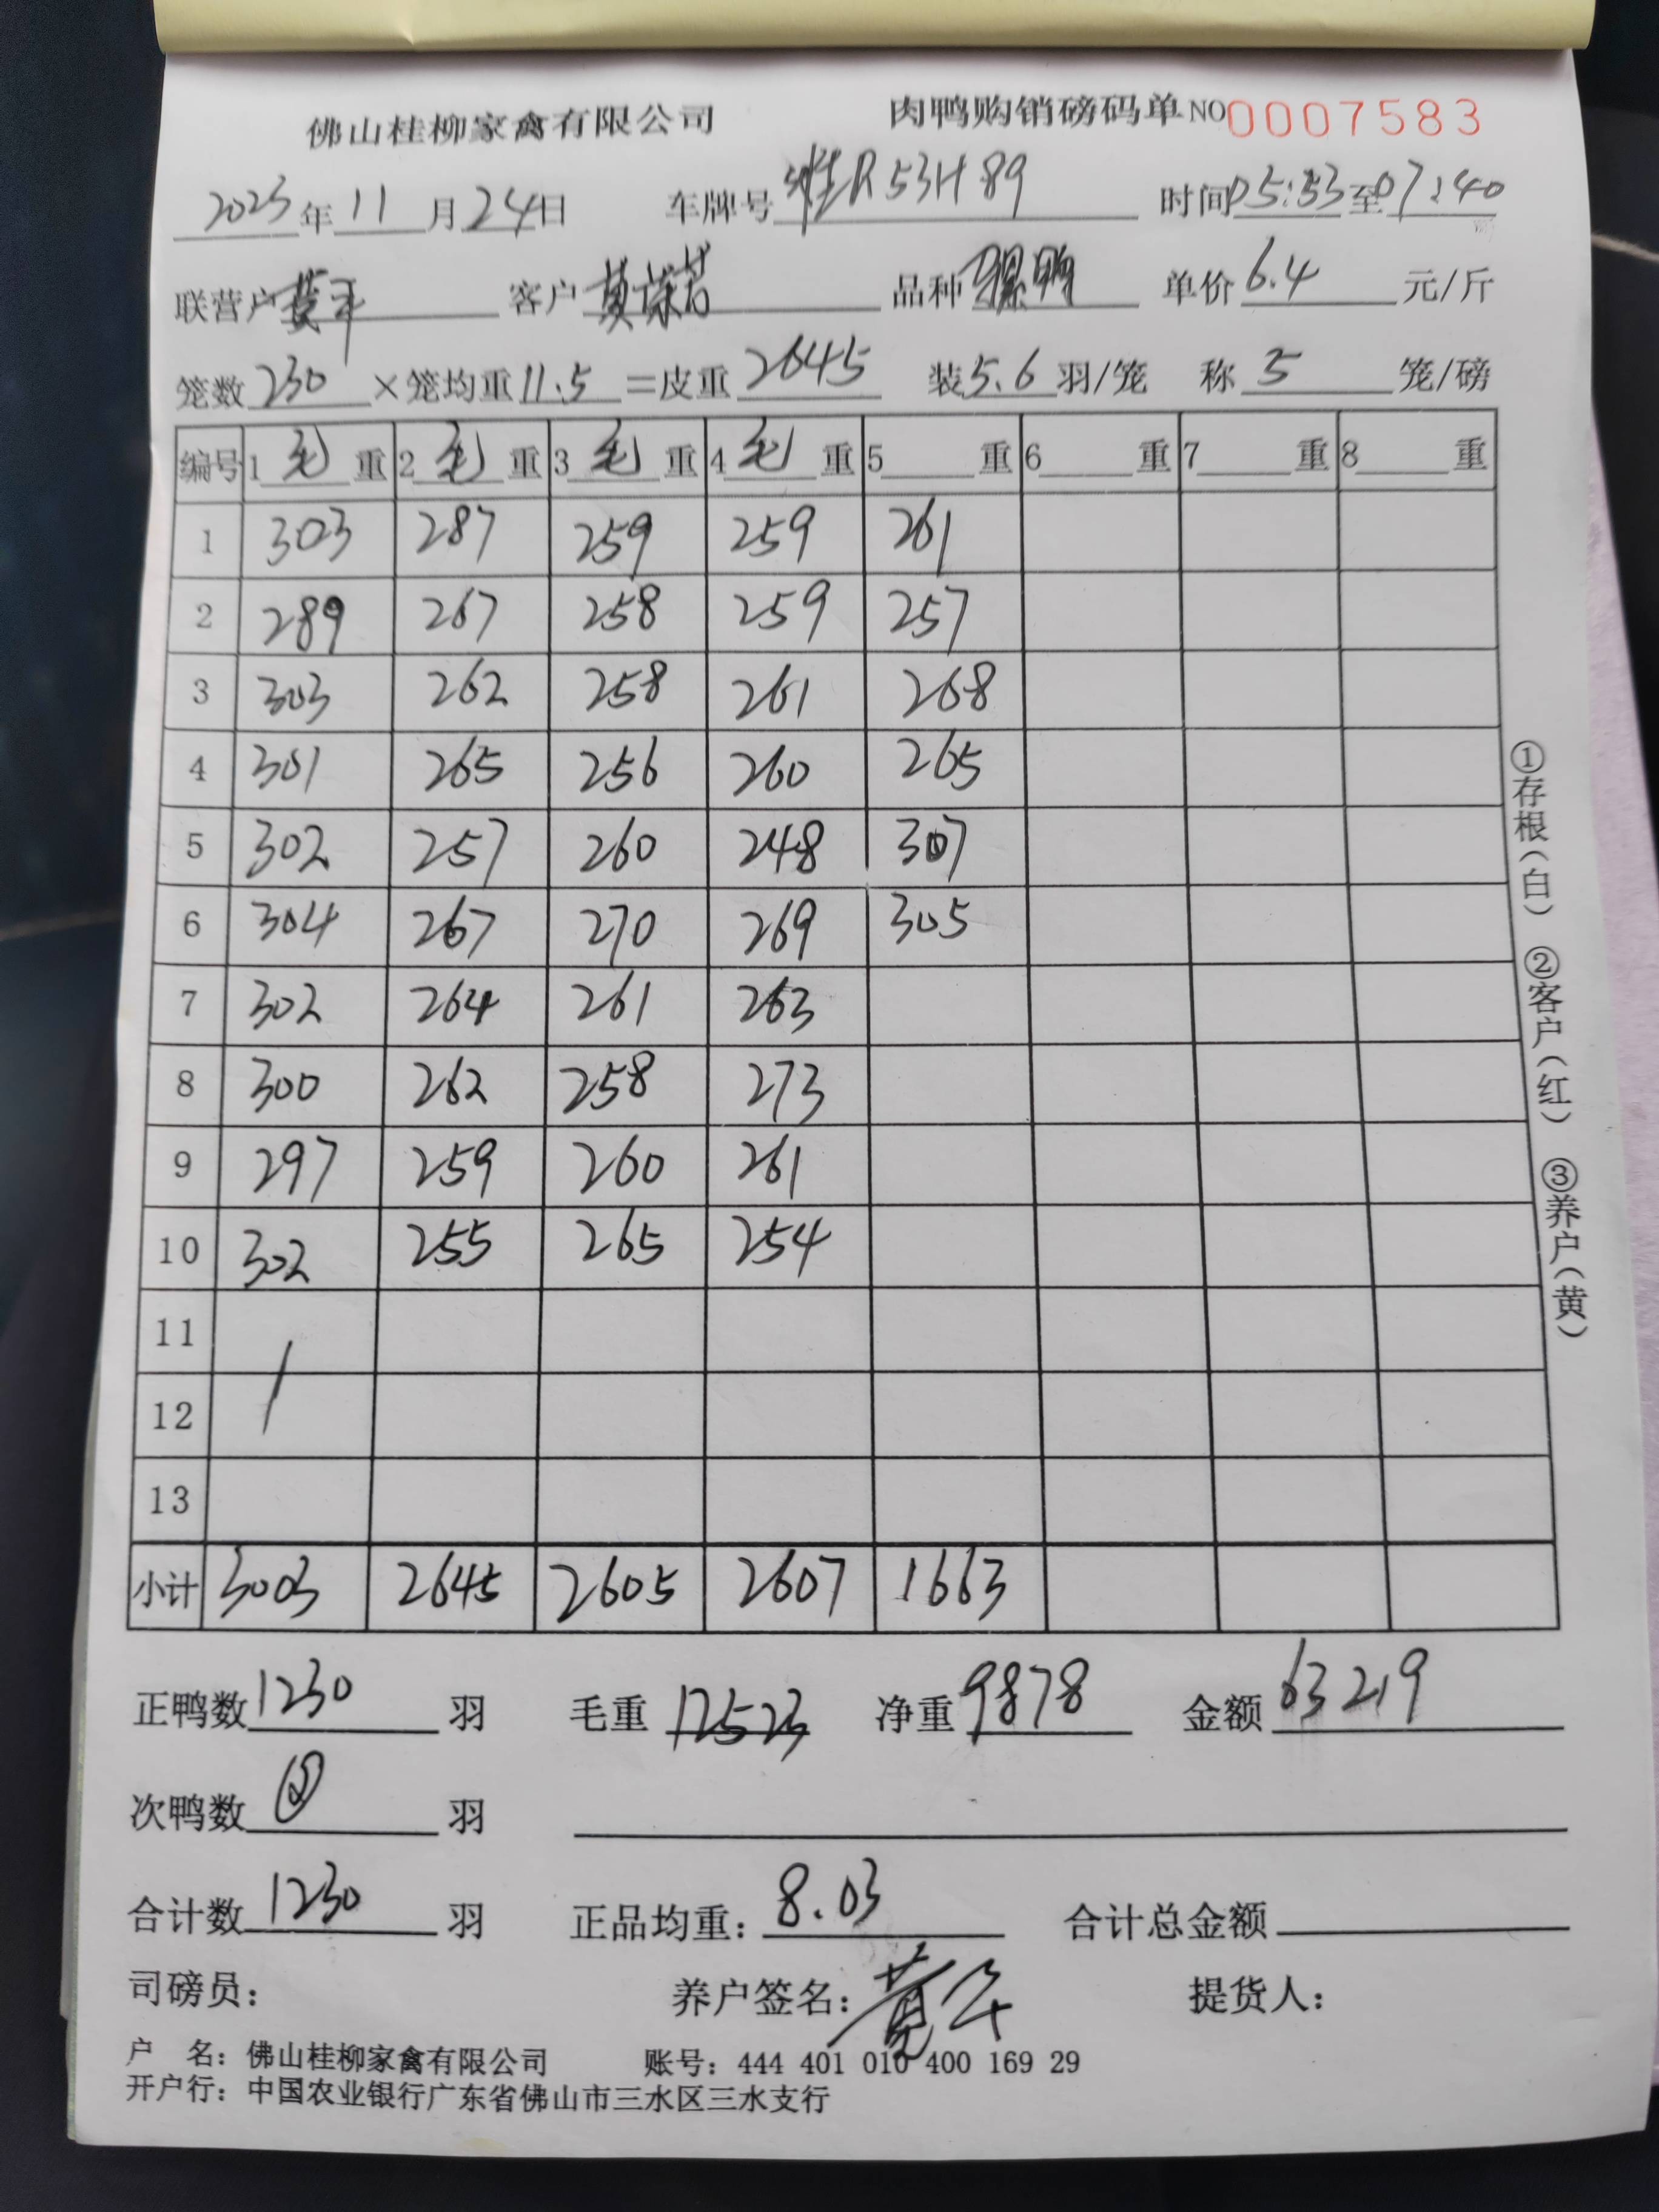 佛山桂柳家禽有限公司 肉鸭购销磅码单 NO 0007583
2025年11月24日 车牌号 桂R53H89 时间05:53至07:40
联营户 黄平 客户 品种 骡鸭 单价6.4元/斤
笼数230×笼均重11.5=皮重2645 装5.6羽/笼 称5笼/磅
编号 1毛重 2毛重 3毛重 4毛重 5重 6重 7重 8重
1 303 287 259 259 261
2 289 267 258 259 257
3 303 262 258 261 268
4 301 265 256 260 265
5 302 257 260 248 307
6 304 267 270 269 305
7 302 264 261 263
8 300 262 258 273
9 297 259 260 261
10 302 255 265 254
11
12
13
小计 3003 2645 2605 2607 1663
正鸭数1230羽 毛重12523 净重9878 金额63219
次鸭数 羽
合计数1230羽 正品均重：8.03 合计总金额
司磅员： 养户签名：黄平 提货人：
户 名：佛山桂柳家禽有限公司 账号：444 401 010 400 169 29
开户行：中国农业银行广东省佛山市三水区三水支行
①存根（白） ②客户（红） ③养户（黄）